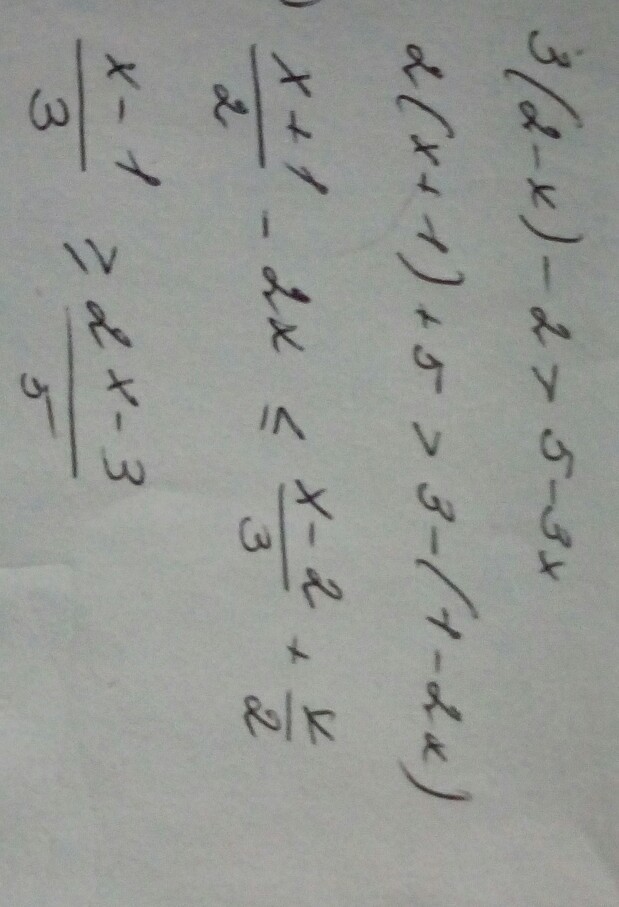 3(2-x)-2>5-3x
2(x+1)+5>3-(1-2x)
(x+1)/2 - 2x ≤ (x-2)/3 + x/2
(x-1)/3 ≥ (2x-3)/5